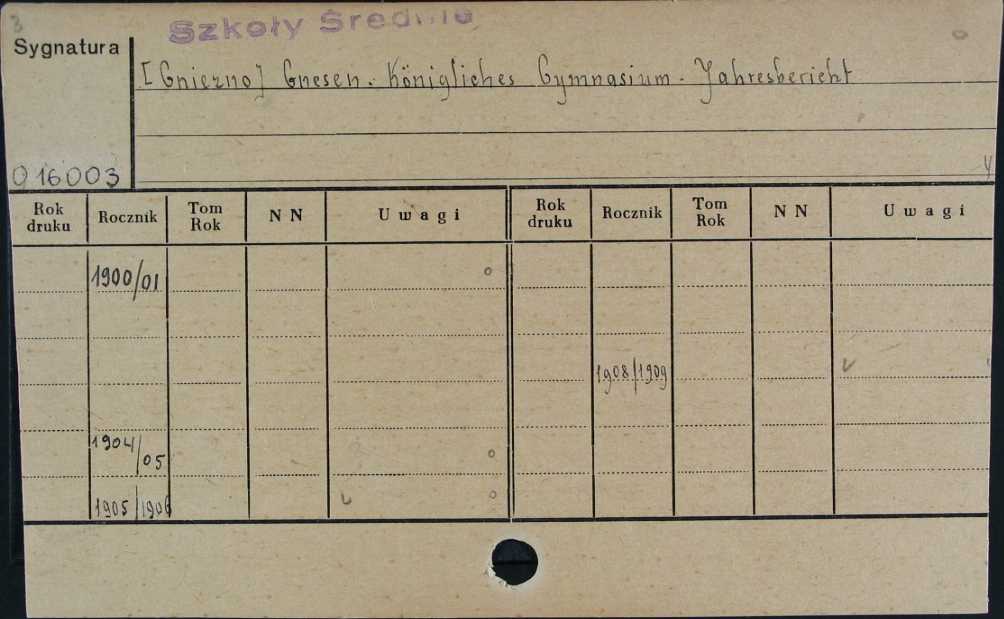 3
Szkoły Średnie
Sygnatura
[Gniezno] Gnesen. Königliches Gymnasium. Jahresbericht
016003
Rok druku Rocznik Tom Rok NN Uwagi Rok druku Rocznik Tom Rok NN Uwagi
1900/01
1908/1909
1904/05
1905/1906